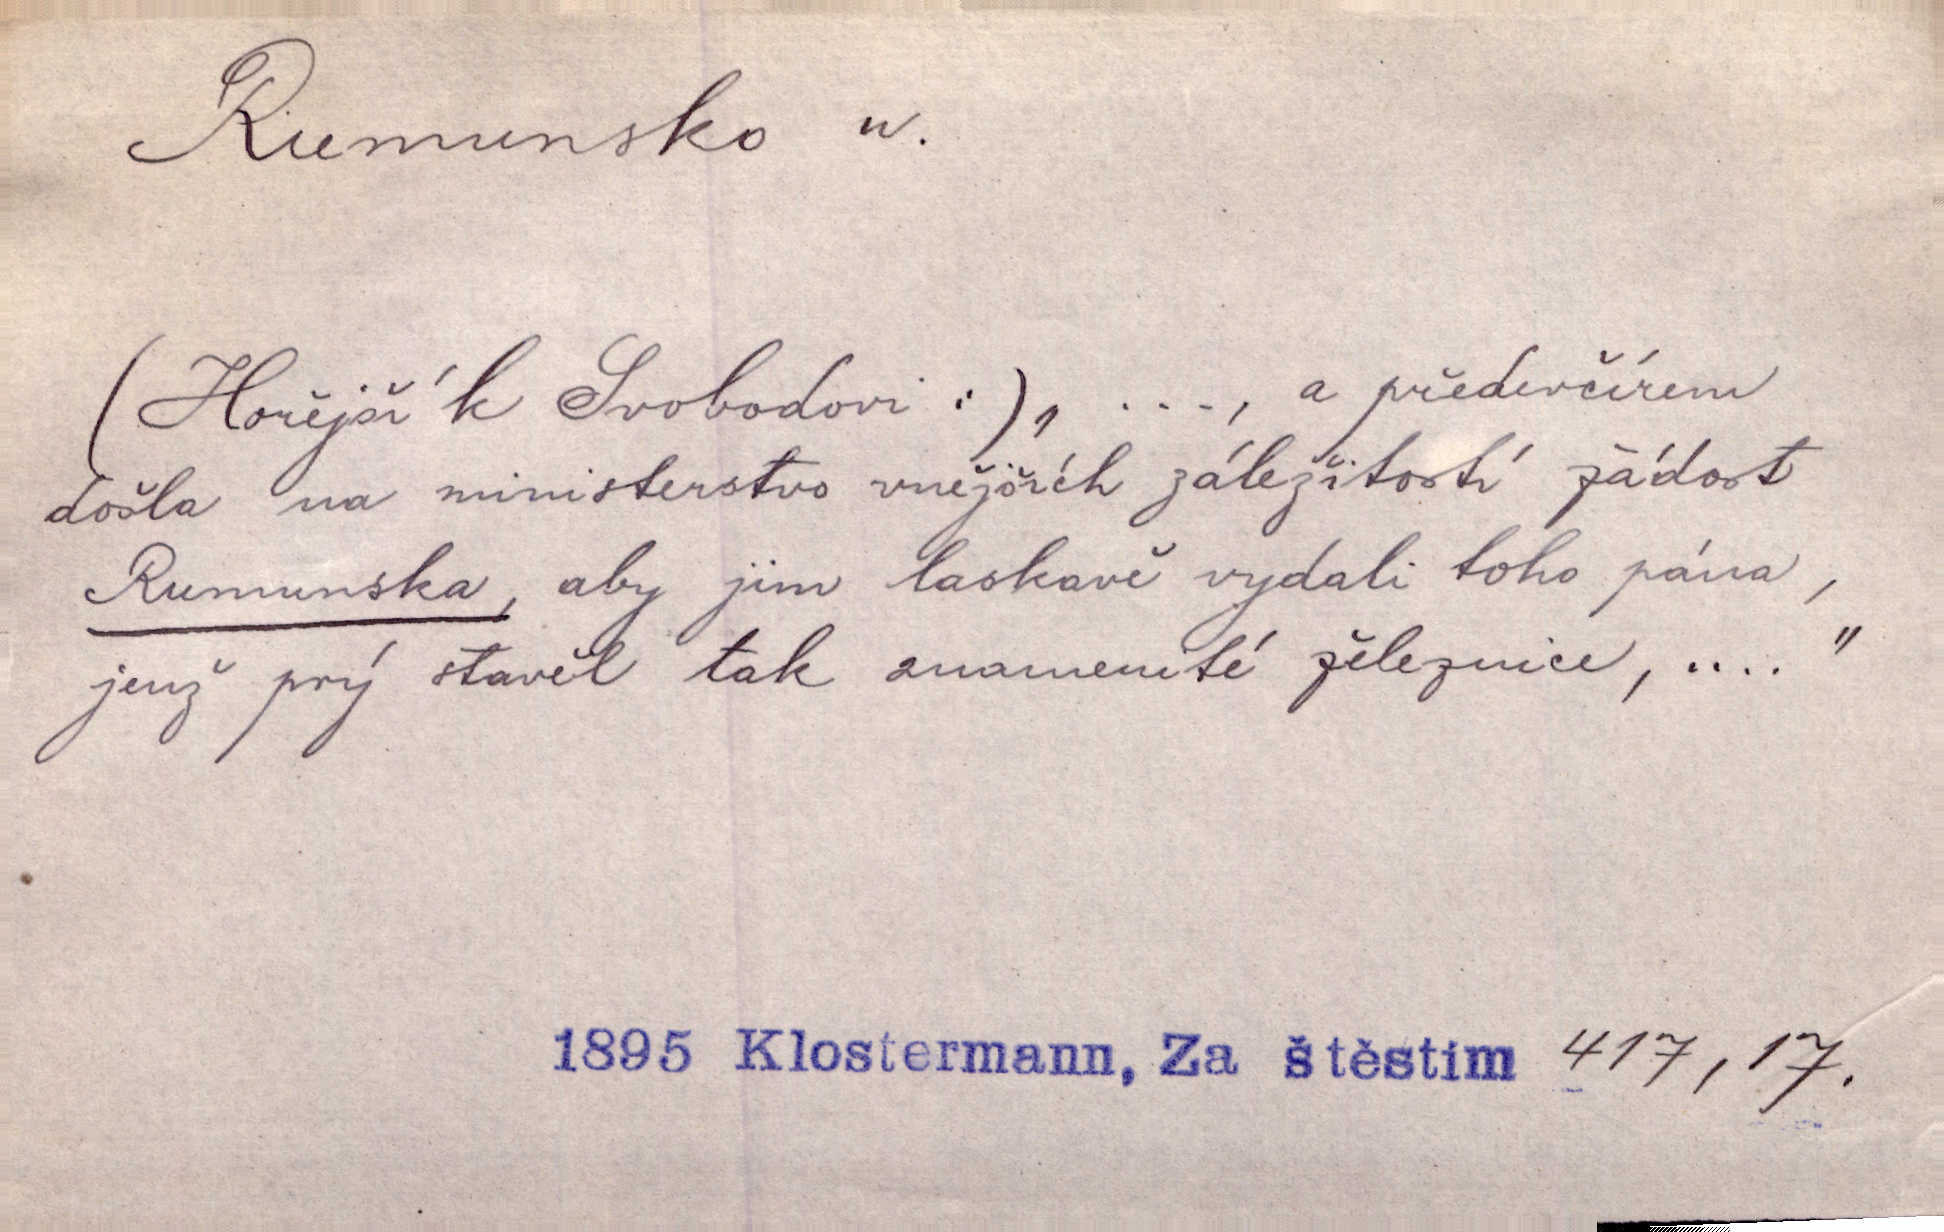 Rumunsko n.
(Hořejší k Svobodovi :) „ ...., a předevčírem
došla na ministerstvo vnějších záležitostí žádost
Rumunska, aby jim laskavě vydali toho pána,
jenž prý stavěl tak znamenité železnice, ...."
1895 Klostermann, Za štěstim 417, 17.